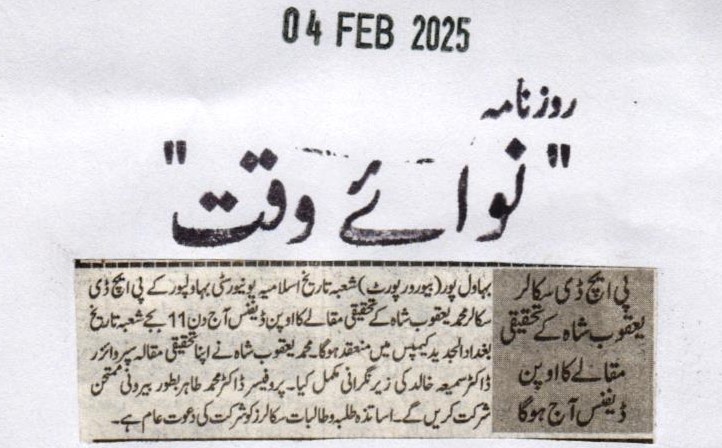 04 FEB 2025
روزنامہ
"نوائے وقت"
پی ایچ ڈی سکالر
یعقوب شاہ کے تحقیقی
مقالے کا اوپن
ڈیفنس آج ہوگا
بہاول پور (بیورو رپورٹ) شعبہ تاریخ اسلامیہ یونیورسٹی بہاولپور کے پی ایچ ڈی
سکالر محمد یعقوب شاہ کے تحقیقی مقالے کا اوپن ڈیفنس آج دن 11 بجے شعبہ تاریخ
بغداد الجدید کیمپس میں منعقد ہوگا۔ محمد یعقوب شاہ نے اپنا تحقیقی مقالہ سپروائزر
ڈاکٹر سمیعہ خالد کی زیر نگرانی مکمل کیا۔ پروفیسر ڈاکٹر محمد طاہر بطور بیرونی ممتحن
شرکت کریں گے۔ اساتذہ طلبہ و طالبات سکالرز کو شرکت کی دعوت عام ہے۔